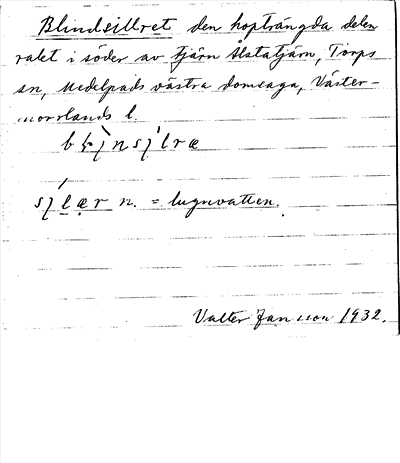 Blindsillret den hopträngda delen
 i söder av tjärn Ålstatjärn, Torps
sn, Medelpads västra domsaga, Väster-
norrlands l.
n. = lugnvatten.
Valter Jansson 1932.